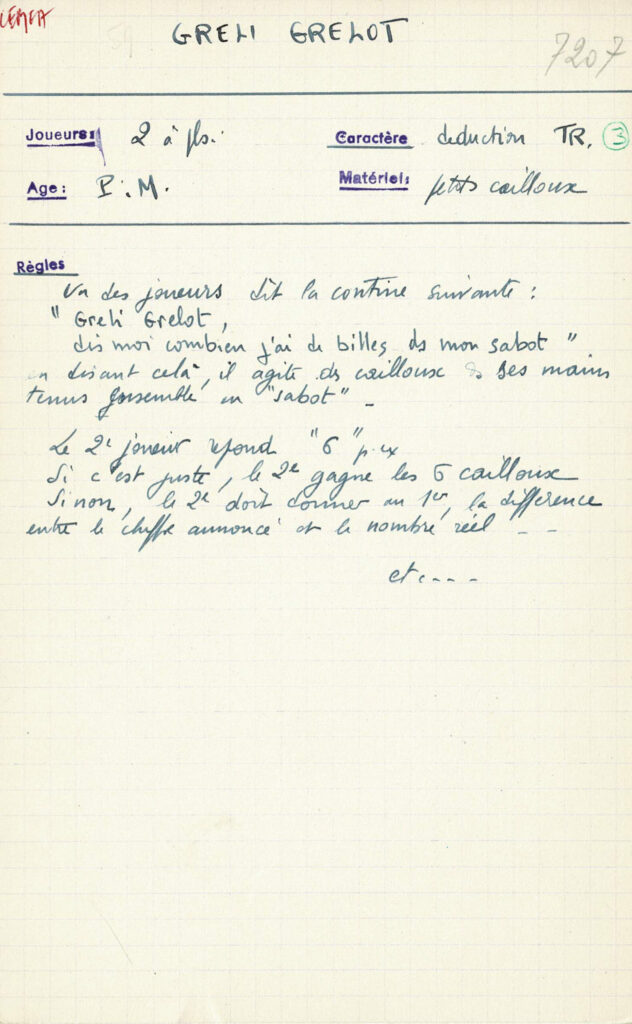 CEMEA
GRELI GRELOT
7207
Joueurs: 2 à pls.
Caractère deduction TR. 3
Age: P. M.
Matériel: petits cailloux
Règles
Un des joueurs dit la comtine suivante :
" Greli Grelot,
dis moi combien j'ai de billes ds mon sabot "
en disant celà, il agite ds cailloux ds ses mains
tenus ensemble en "sabot" _
Le 2e joueur repond "6" p. ex
Si c'est juste, le 2e gagne les 6 cailloux
Sinon, le 2e doit donner au 1er, la différence
entre le chiffre annoncé et le nombre réel _ _
etc----